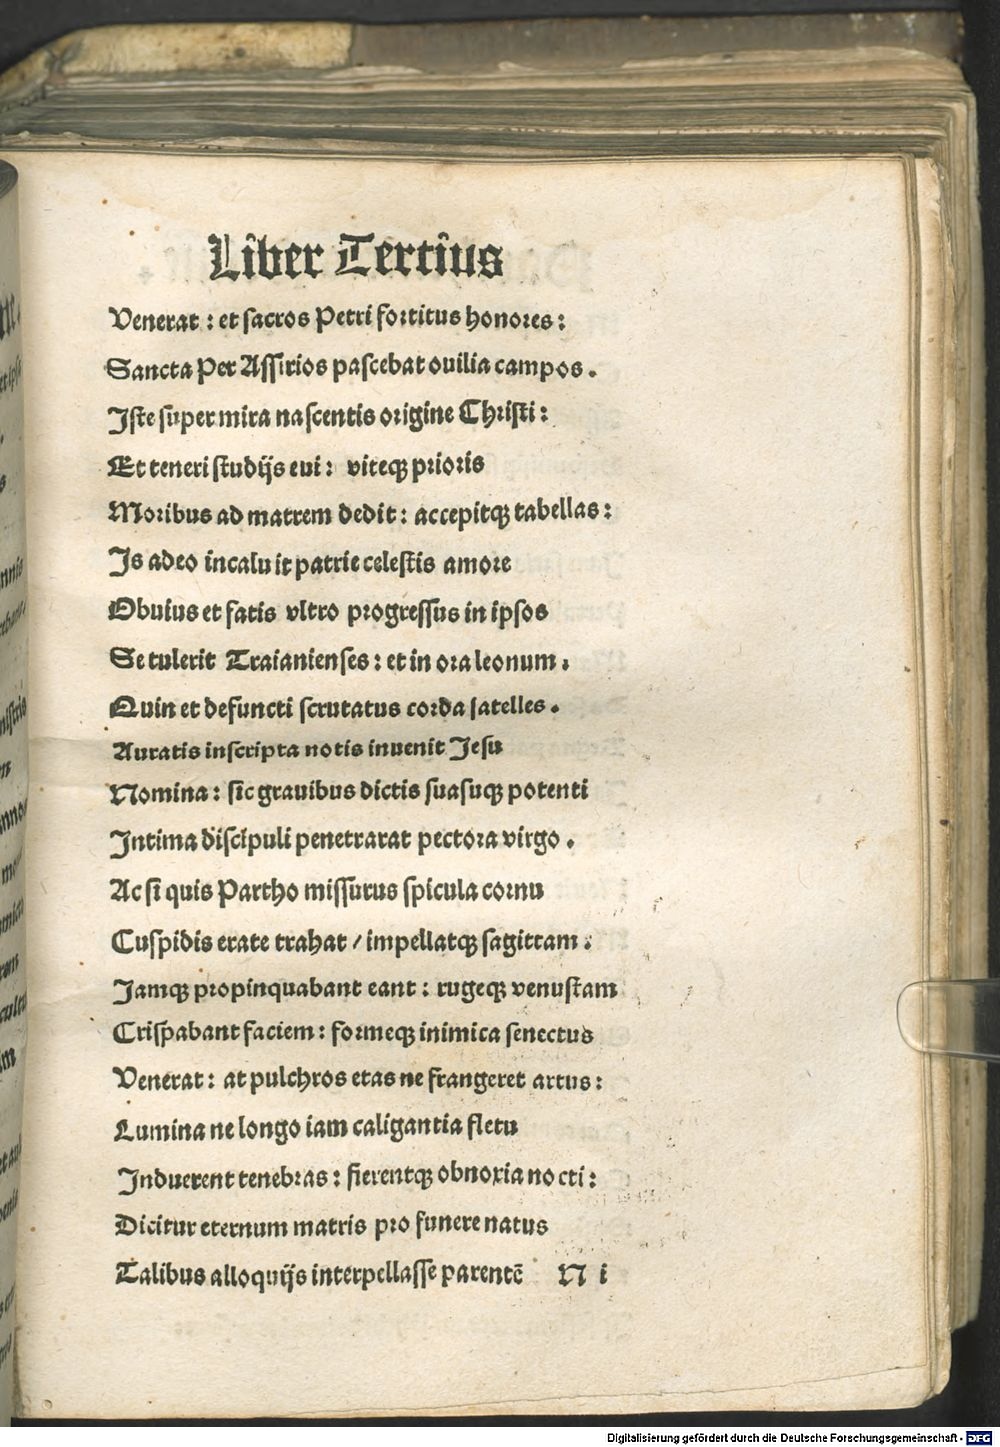 Liber Tertius
Venerat : et sacros Petri sortitus honores :
Sancta Per Assirios pascebat ouilia campos .
Iste super mira nascentis origine Christi :
Et teneri studijs eui : viteqꝫ prioris
Moribus ad matrem dedit : accepitqꝫ tabellas :
Is adeo incaluit patrie celestis amore
Obuius et fatis vltro progressus in ipsos
Se tulerit Traianienses : et in ora leonum .
Quin et defuncti scrutatus corda satelles .
Auratis inscripta notis inuenit Jesu
Nomina : sic grauibus dictis suasuqꝫ potenti
Intima discipuli penetrarat pectora virgo .
Ac si quis Partho missurus spicula cornu
Cuspidis erate trahat / impellatqꝫ sagittam .
Jamqꝫ propinquabant eant : rugeqꝫ venustam
Crispabant faciem : formeqꝫ inimica senectus
Venerat : at pulchros etas ne frangeret artus :
Lumina ne longo iam caligantia fletu
Induerent tenebras : fierentqꝫ obnoxia nocti :
Dicitur eternum matris pro funere natus
Talibus alloquijs interpellasse parentē N i
Digitalisierung gefördert durch die Deutsche Forschungsgemeinschaft - DFG